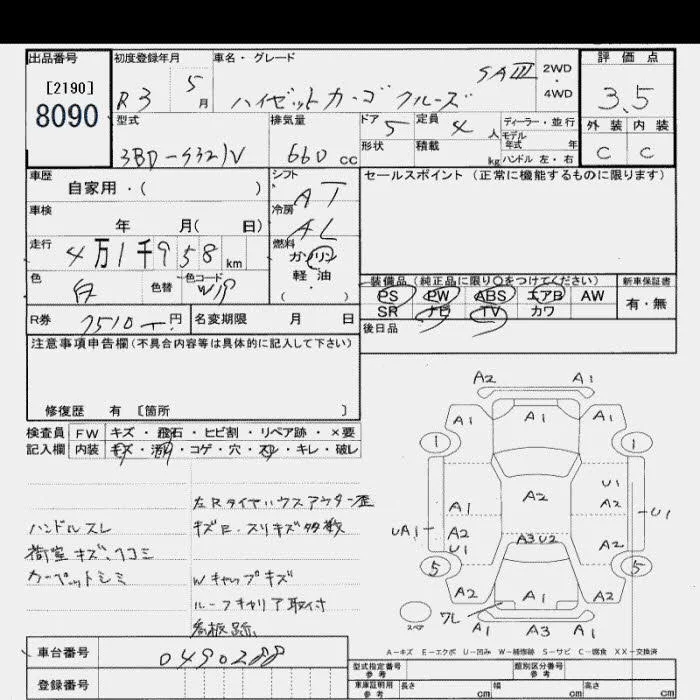 出品番号
[2190]
8090
初度登録年月
R3 5月
車名・グレード
ハイゼットカーゴ クルーズ SAⅢ
2WD
・
4WD
評価点
3.5
外装 内装
C C
型式
3BD-S321V
排気量
660 cc
ドア 5
定員 4 人
ディーラー・並行
モデル年式 年
形状
積載 kg
ハンドル 左・右
車歴
自家用・( )
シフト
AT
冷房
AC
車検
年 月( 日)
走行
4万1千958 km
燃料
ガソリン
軽油
( ・ )
色
白
色替
色コード
W19
セールスポイント (正常に機能するものに限ります)
装備品 (純正品に限り○をつけてください)
新車保証書
PS PW ABS エアB AW
SR ナビ TV カワ
有・無
後日品
R券
7510 円
名変期限 月 日
注意事項申告欄(不具合内容等は具体的に記入して下さい)
修復歴 有 〔箇所 〕
検査員記入欄
FW キズ・飛石・ヒビ割・リペア跡・×要
内装 キズ・汚れ・コゲ・穴・スレ・キレ・破レ
ハンドルスレ
荷室キズ、ヘコミ
カーペットシミ
左Rタイヤハウスアウター歪
キズE、スリキズ多数
Wキャップキズ
ルーフキャリア取付
看板跡
A2 A1
A1 A1 A1
1 1
A1 A2 U1 A2
UA1 A2 U1 A3 U2 A2 U1
5 5
A2 A1 A2
ワレ
スペア
A1 A3 A1
A-キズ E-エクボ U-凹み W-補修跡 S-サビ C-腐食 XX-交換済
車台番号
0490288
登録番号
型式指定番号 参考
類別区分番号 参考
車庫証明用 参考
長さ cm
幅 cm
高さ cm